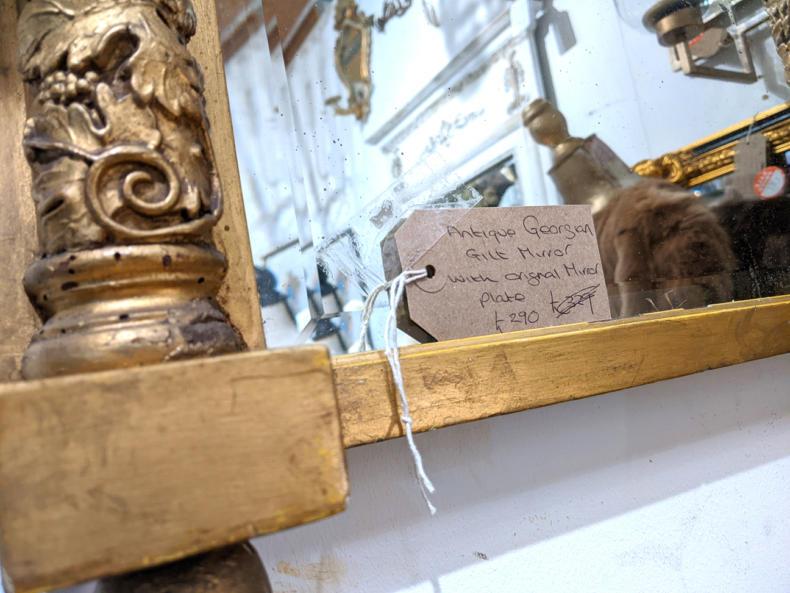 Antique Georgian
Gilt Mirror
with original Mirror
plate
£290